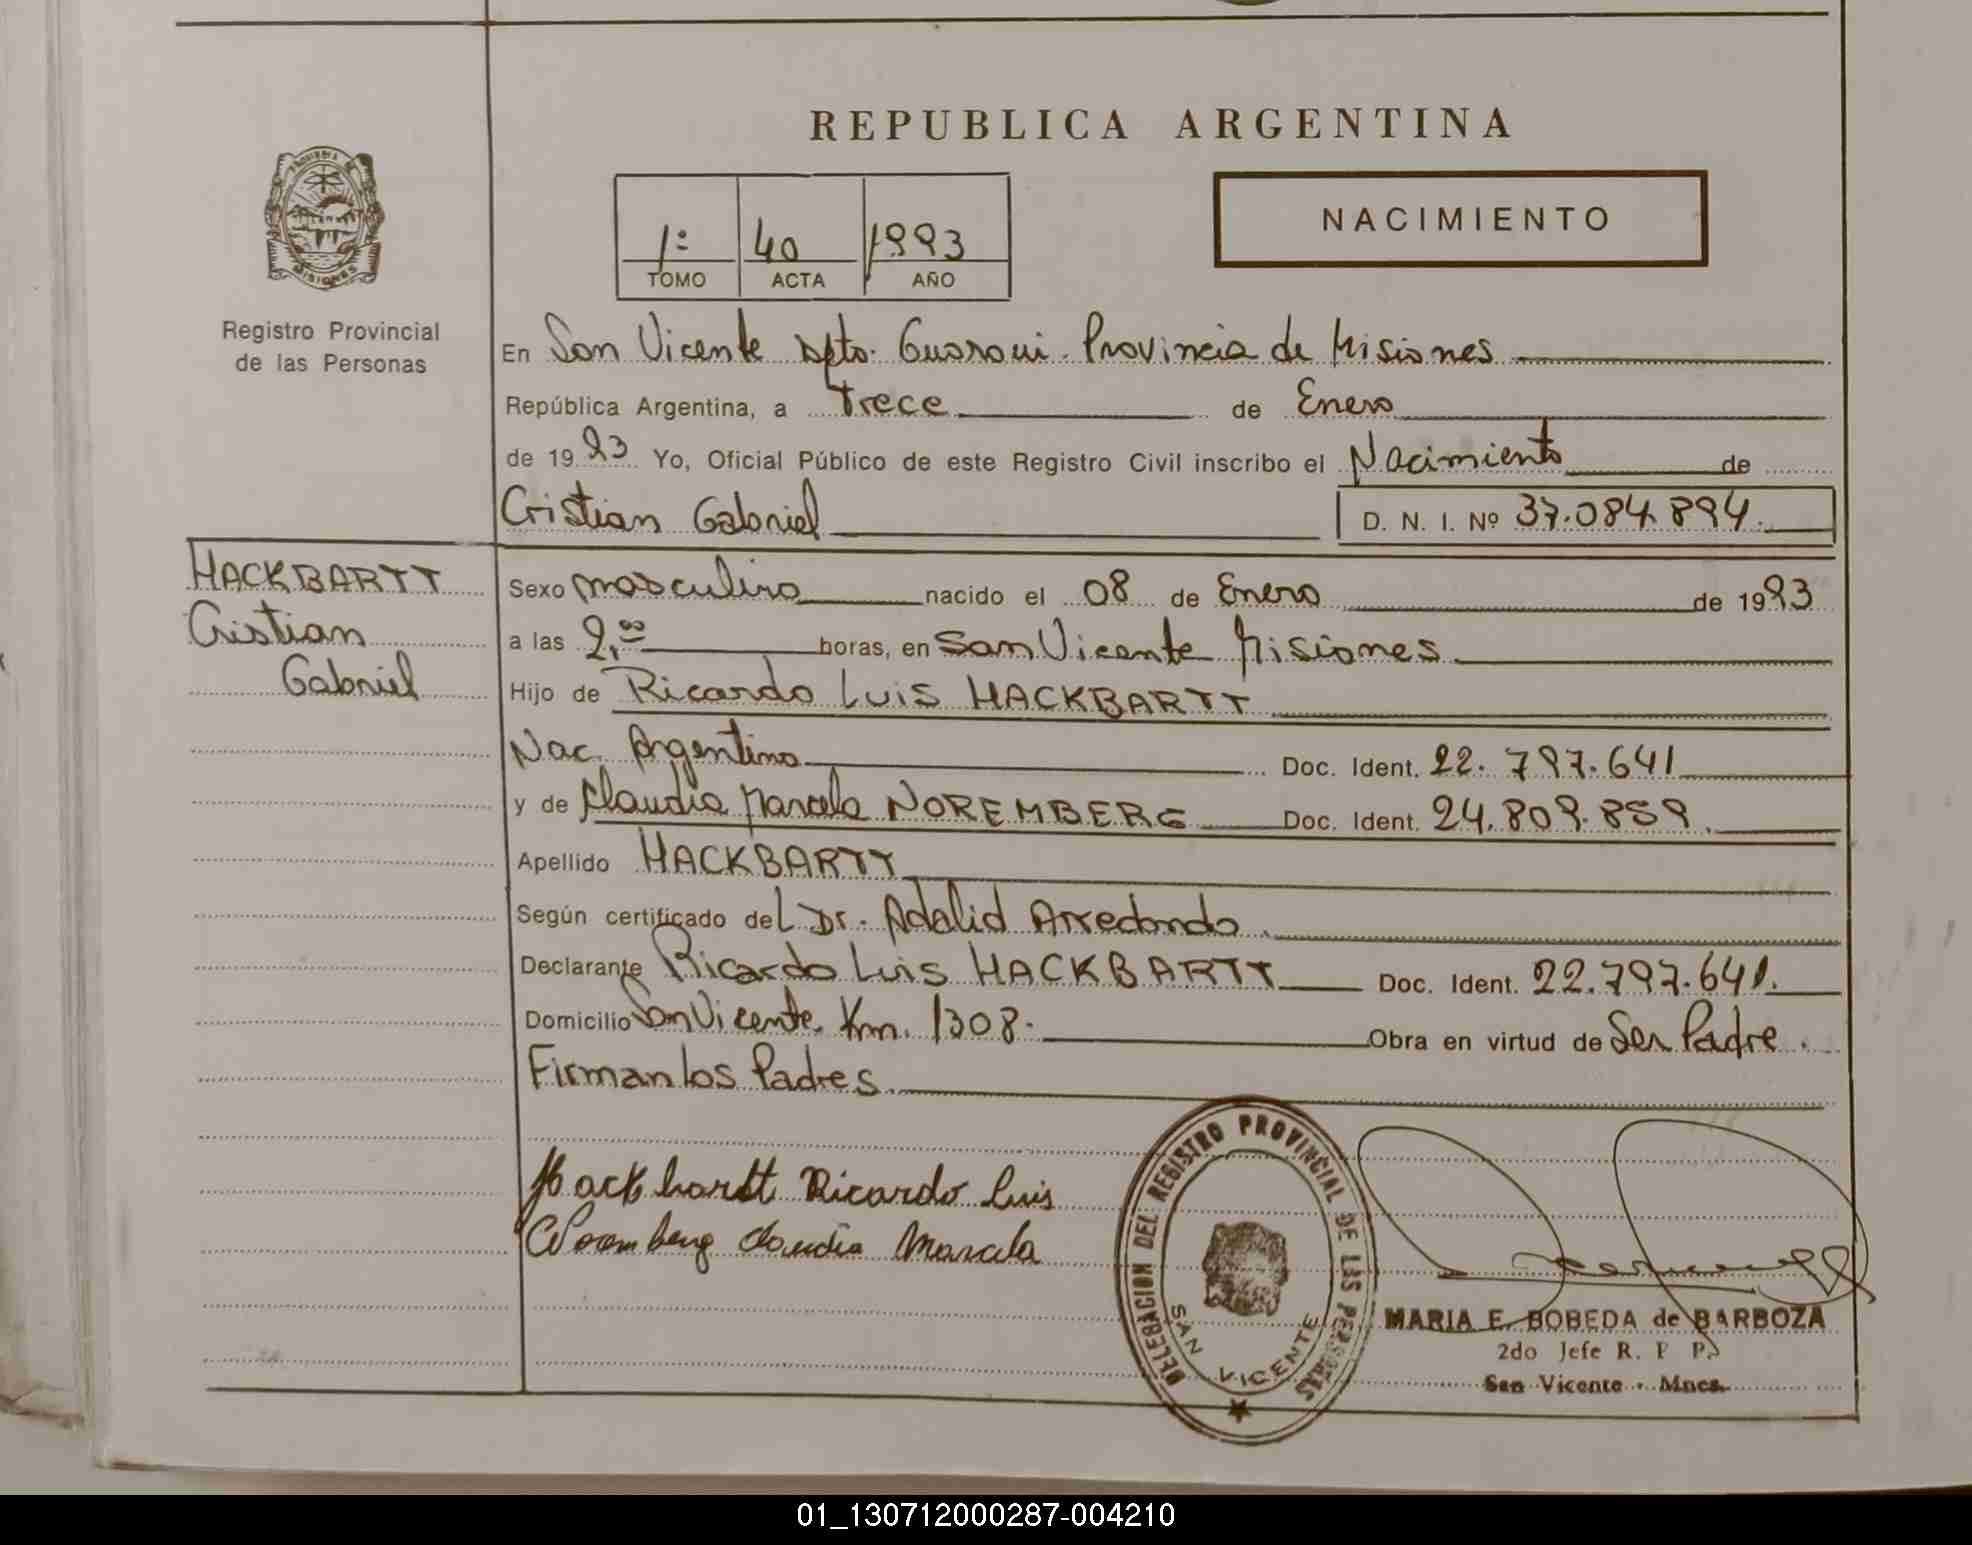 REPUBLICA ARGENTINA
PROVINCIA DE MISIONES
Registro Provincial
de las Personas
1º 40 1993
TOMO ACTA AÑO
NACIMIENTO
En San Vicente Dpto. Guarani. Provincia de Misiones
República Argentina, a Trece de Enero
de 1993 Yo, Oficial Público de este Registro Civil inscribo el Nacimiento de
Cristian Gabriel D. N. I. Nº 37.084.894.
HACKBARTT
Cristian
Gabriel
Sexo masculino nacido el 08 de Enero de 1993
a las 2,00 horas, en San Vicente Misiones
Hijo de Ricardo Luis HACKBARTT
Nac. Argentino Doc. Ident. 22.797.641
y de Claudia Marcela NOREMBERG Doc. Ident. 24.809.859.
Apellido HACKBARTT
Según certificado del Dr. Adalid Arredondo.
Declarante Ricardo Luis HACKBARTT Doc. Ident. 22.797.641.
Domicilio San Vicente. Km. 1308. Obra en virtud de Ser Padre.
Firman los Padres.
Hackbartt Ricardo Luis
Claudia Marcela
DELEGACION DEL REGISTRO PROVINCIAL DE LAS PERSONAS
SAN VICENTE
MARIA E. BOBEDA de BARBOZA
2do Jefe R. P P.
San Vicente - Mnes.
01_130712000287-004210